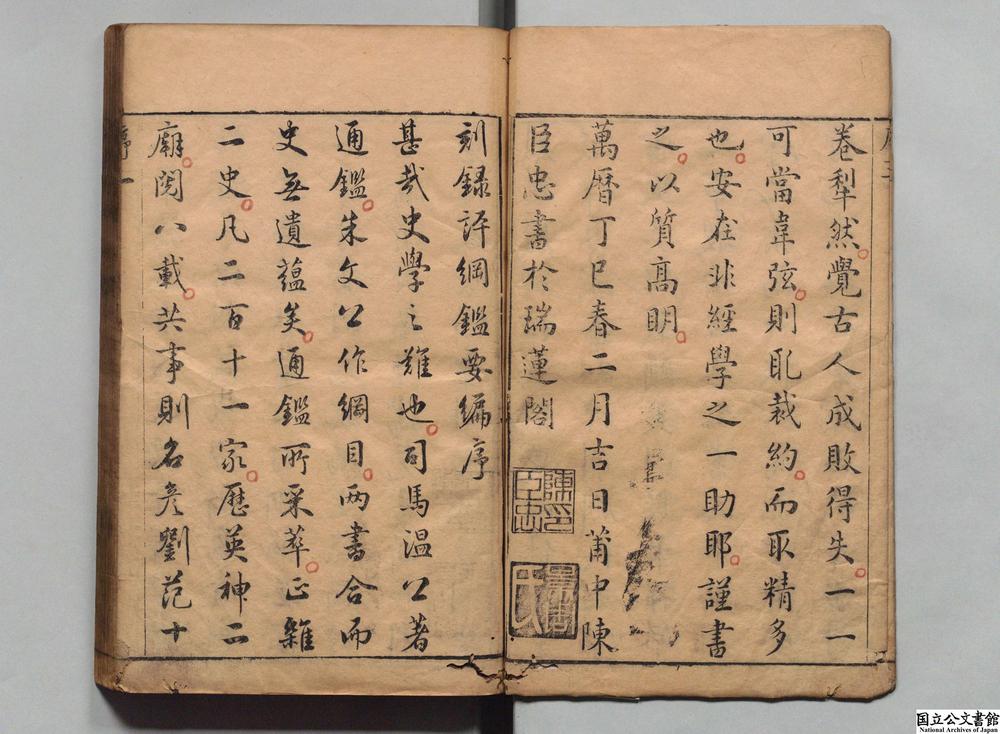 卷犁然覺古人成敗得失一一
可當韋弦則耴裁約而取精多
也安在非經學之一助耶謹書
之以質高明
萬曆丁巳春二月吉日莆中陳
臣忠書於瑞蓮閣
陳印臣忠
刻錄評綱鑑要編序
甚哉史學之難也司馬溫公著
通鑑朱文公作綱目兩書合而
史無遺蘊矣通鑑所采萃正雜
二史凡二百十一家歷英神二
廟閱八載共事則名彥劉范十
序一
国立公文書館
National Archives of Japan